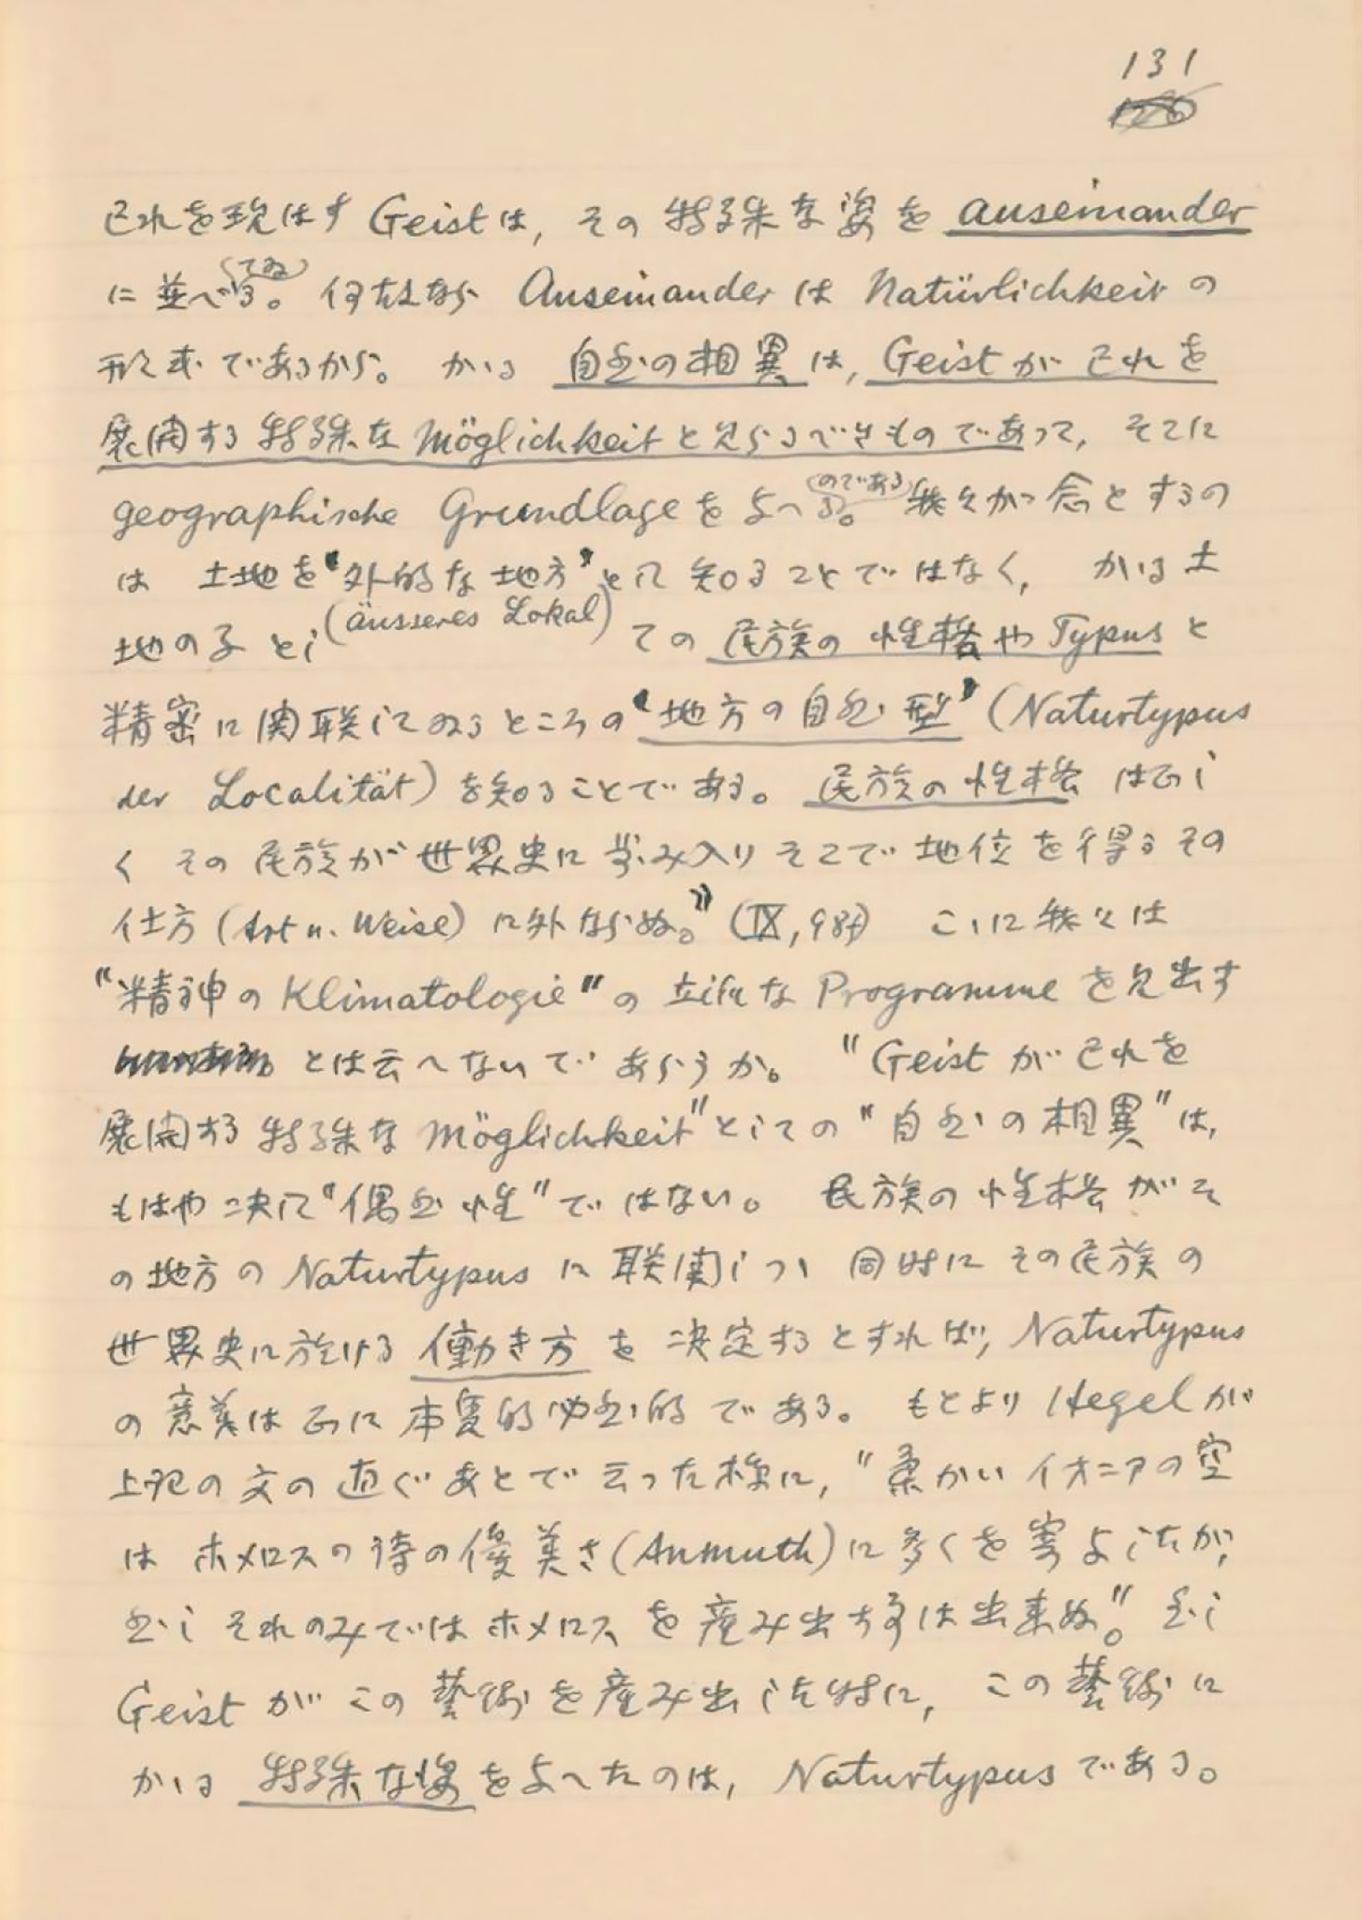 131
己れを現はす Geist は, その 特殊な姿を auseinander
に並べてゐる。 何故なら Auseinander は Natürlichkeit の
形式であるから。 かゝる 自然の相異は, Geist が己れを
展開する特殊な Möglichkeit と見らるべきものであって, そこに
geographische Grundlage を与へるのである。 我々が今念とするの
は 土地を“外的な地方”として知ることではなく, かゝる土
(äusseres Lokal)
地の子とし ての 民族の性格や Typus と
精密に関聯してゐるところの“地方の自然型” (Naturtypus
der Localität) を知ることである。 民族の性格は正し
く その民族が世界史に歩み入りそこで地位を得るその
仕方 (Art u. Weise) に外ならぬ。” (IX, 98f) こゝに我々は
“精神の Klimatologie” の 立派な Programme を見出す
とは云へないであらうか。 “Geist が己れを
展開する特殊な Möglichkeit” としての “自然の相異” は,
もはや決して“偶然性”ではない。 民族の性格がそ
の地方の Naturtypus に聯関しつゝ 同時にその民族の
世界史に於ける 働き方 を 決定するとすれば, Naturtypus
の意義は正に本質的必然的である。 もとより Hegel が
上記の文の直ぐあとで云った様に, “柔かいイオニアの空
は ホメロスの詩の優美さ (Anmuth) に多くを寄与したが,
然しそれのみではホメロスを産み出す事は出来ぬ。” 然し
Geist がこの藝術を産み出した時に, この藝術に
かゝる 特殊な姿を与へたのは, Naturtypus である。